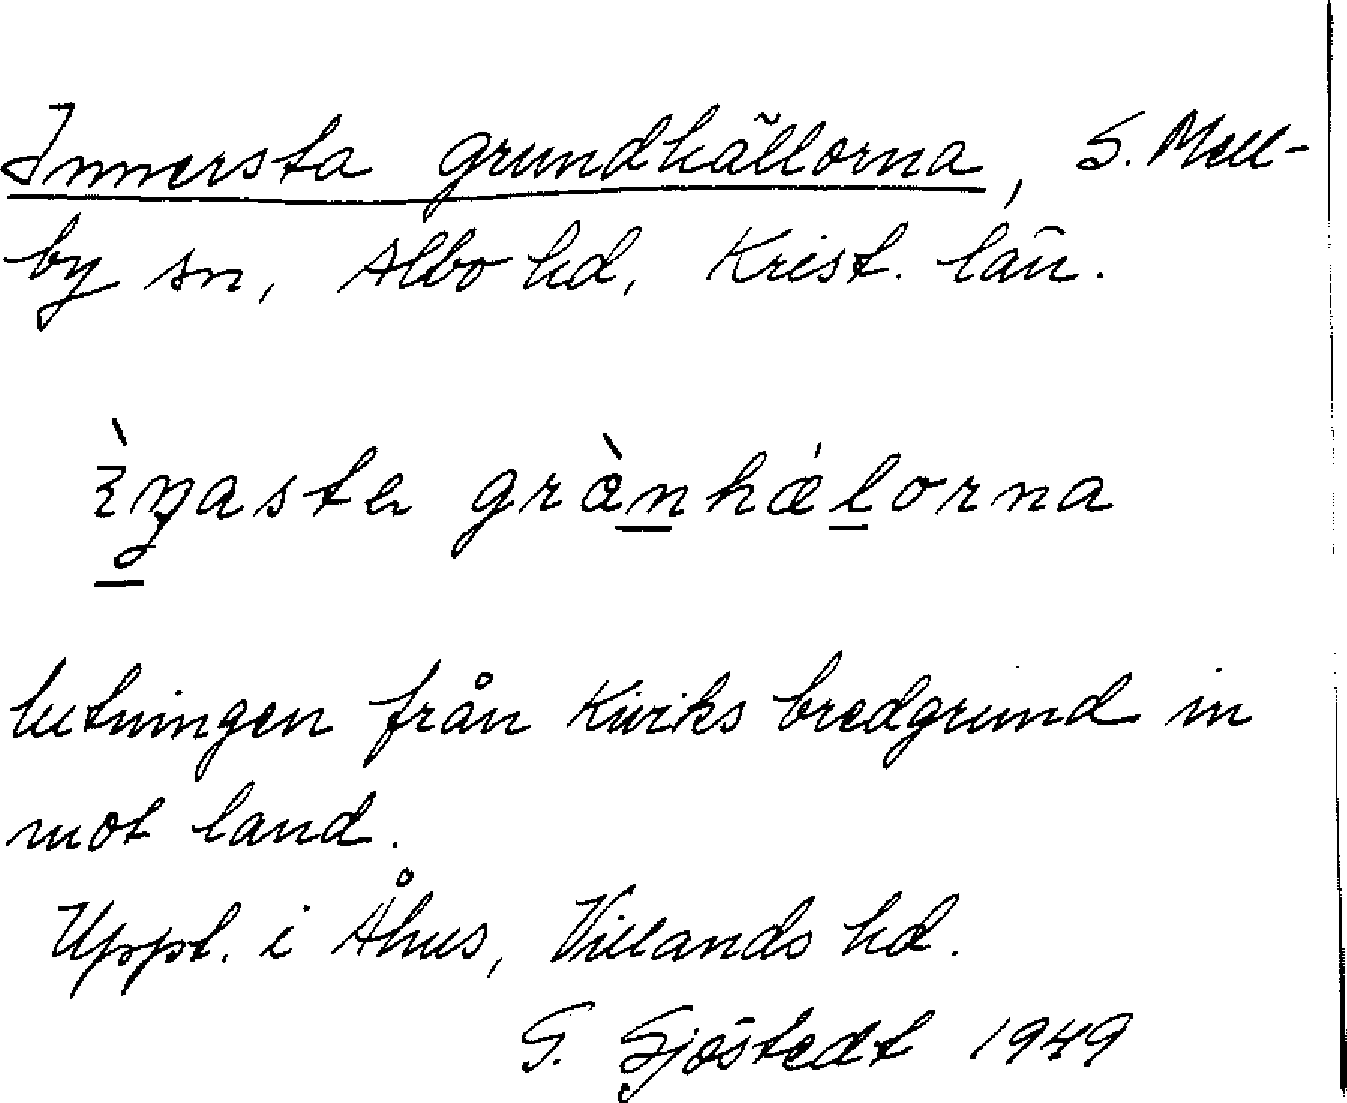 Innersta grundhällorna, S. Mell-
by sn, Albo hd, Krist. län.
grànhælorna
lutningen från Kiviks bredgrund in
mot land.
Uppt. i Åhus, Villands hd.
G. Sjöstedt 1949